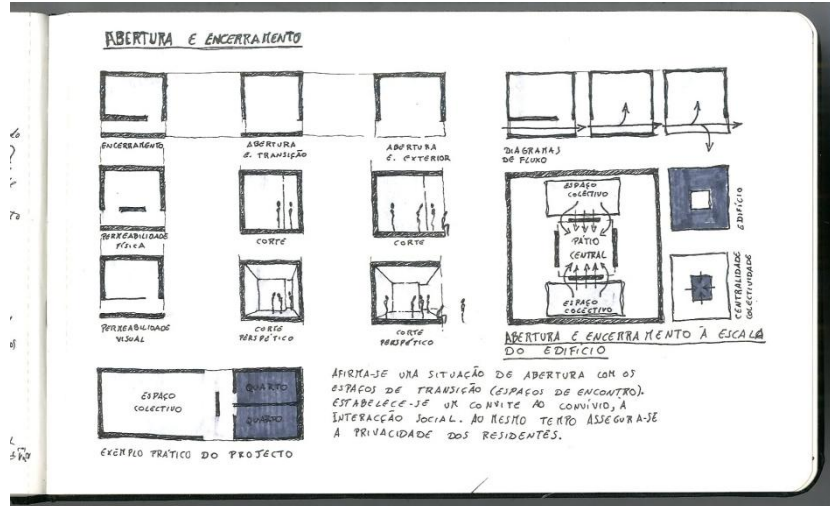 ABERTURA E ENCERRAMENTO
ENCERRAMENTO
ABERTURA
E. TRANSIÇÃO
ABERTURA
E. EXTERIOR
DIAGRAMAS
DE FLUXO
PERMEABILIDADE
FÍSICA
CORTE
CORTE
PERMEABILIDADE
VISUAL
CORTE
PERSPÉTICO
CORTE
PERSPÉTICO
ESPAÇO
COLECTIVO
PÁTIO
CENTRAL
ESPAÇO
COLECTIVO
EDIFÍCIO
CENTRALIDADE
COLECTIVIDADE
ABERTURA E ENCERRAMENTO À ESCALA
DO EDIFÍCIO
ESPAÇO
COLECTIVO
QUARTO
QUARTO
EXEMPLO PRÁTICO DO PROJECTO
AFIRMA-SE UMA SITUAÇÃO DE ABERTURA COM OS
ESPAÇOS DE TRANSIÇÃO (ESPAÇOS DE ENCONTRO).
ESTABELECE-SE UM CONVITE AO CONVÍVIO, À
INTERACÇÃO SOCIAL. AO MESMO TEMPO ASSEGURA-SE
A PRIVACIDADE DOS RESIDENTES.